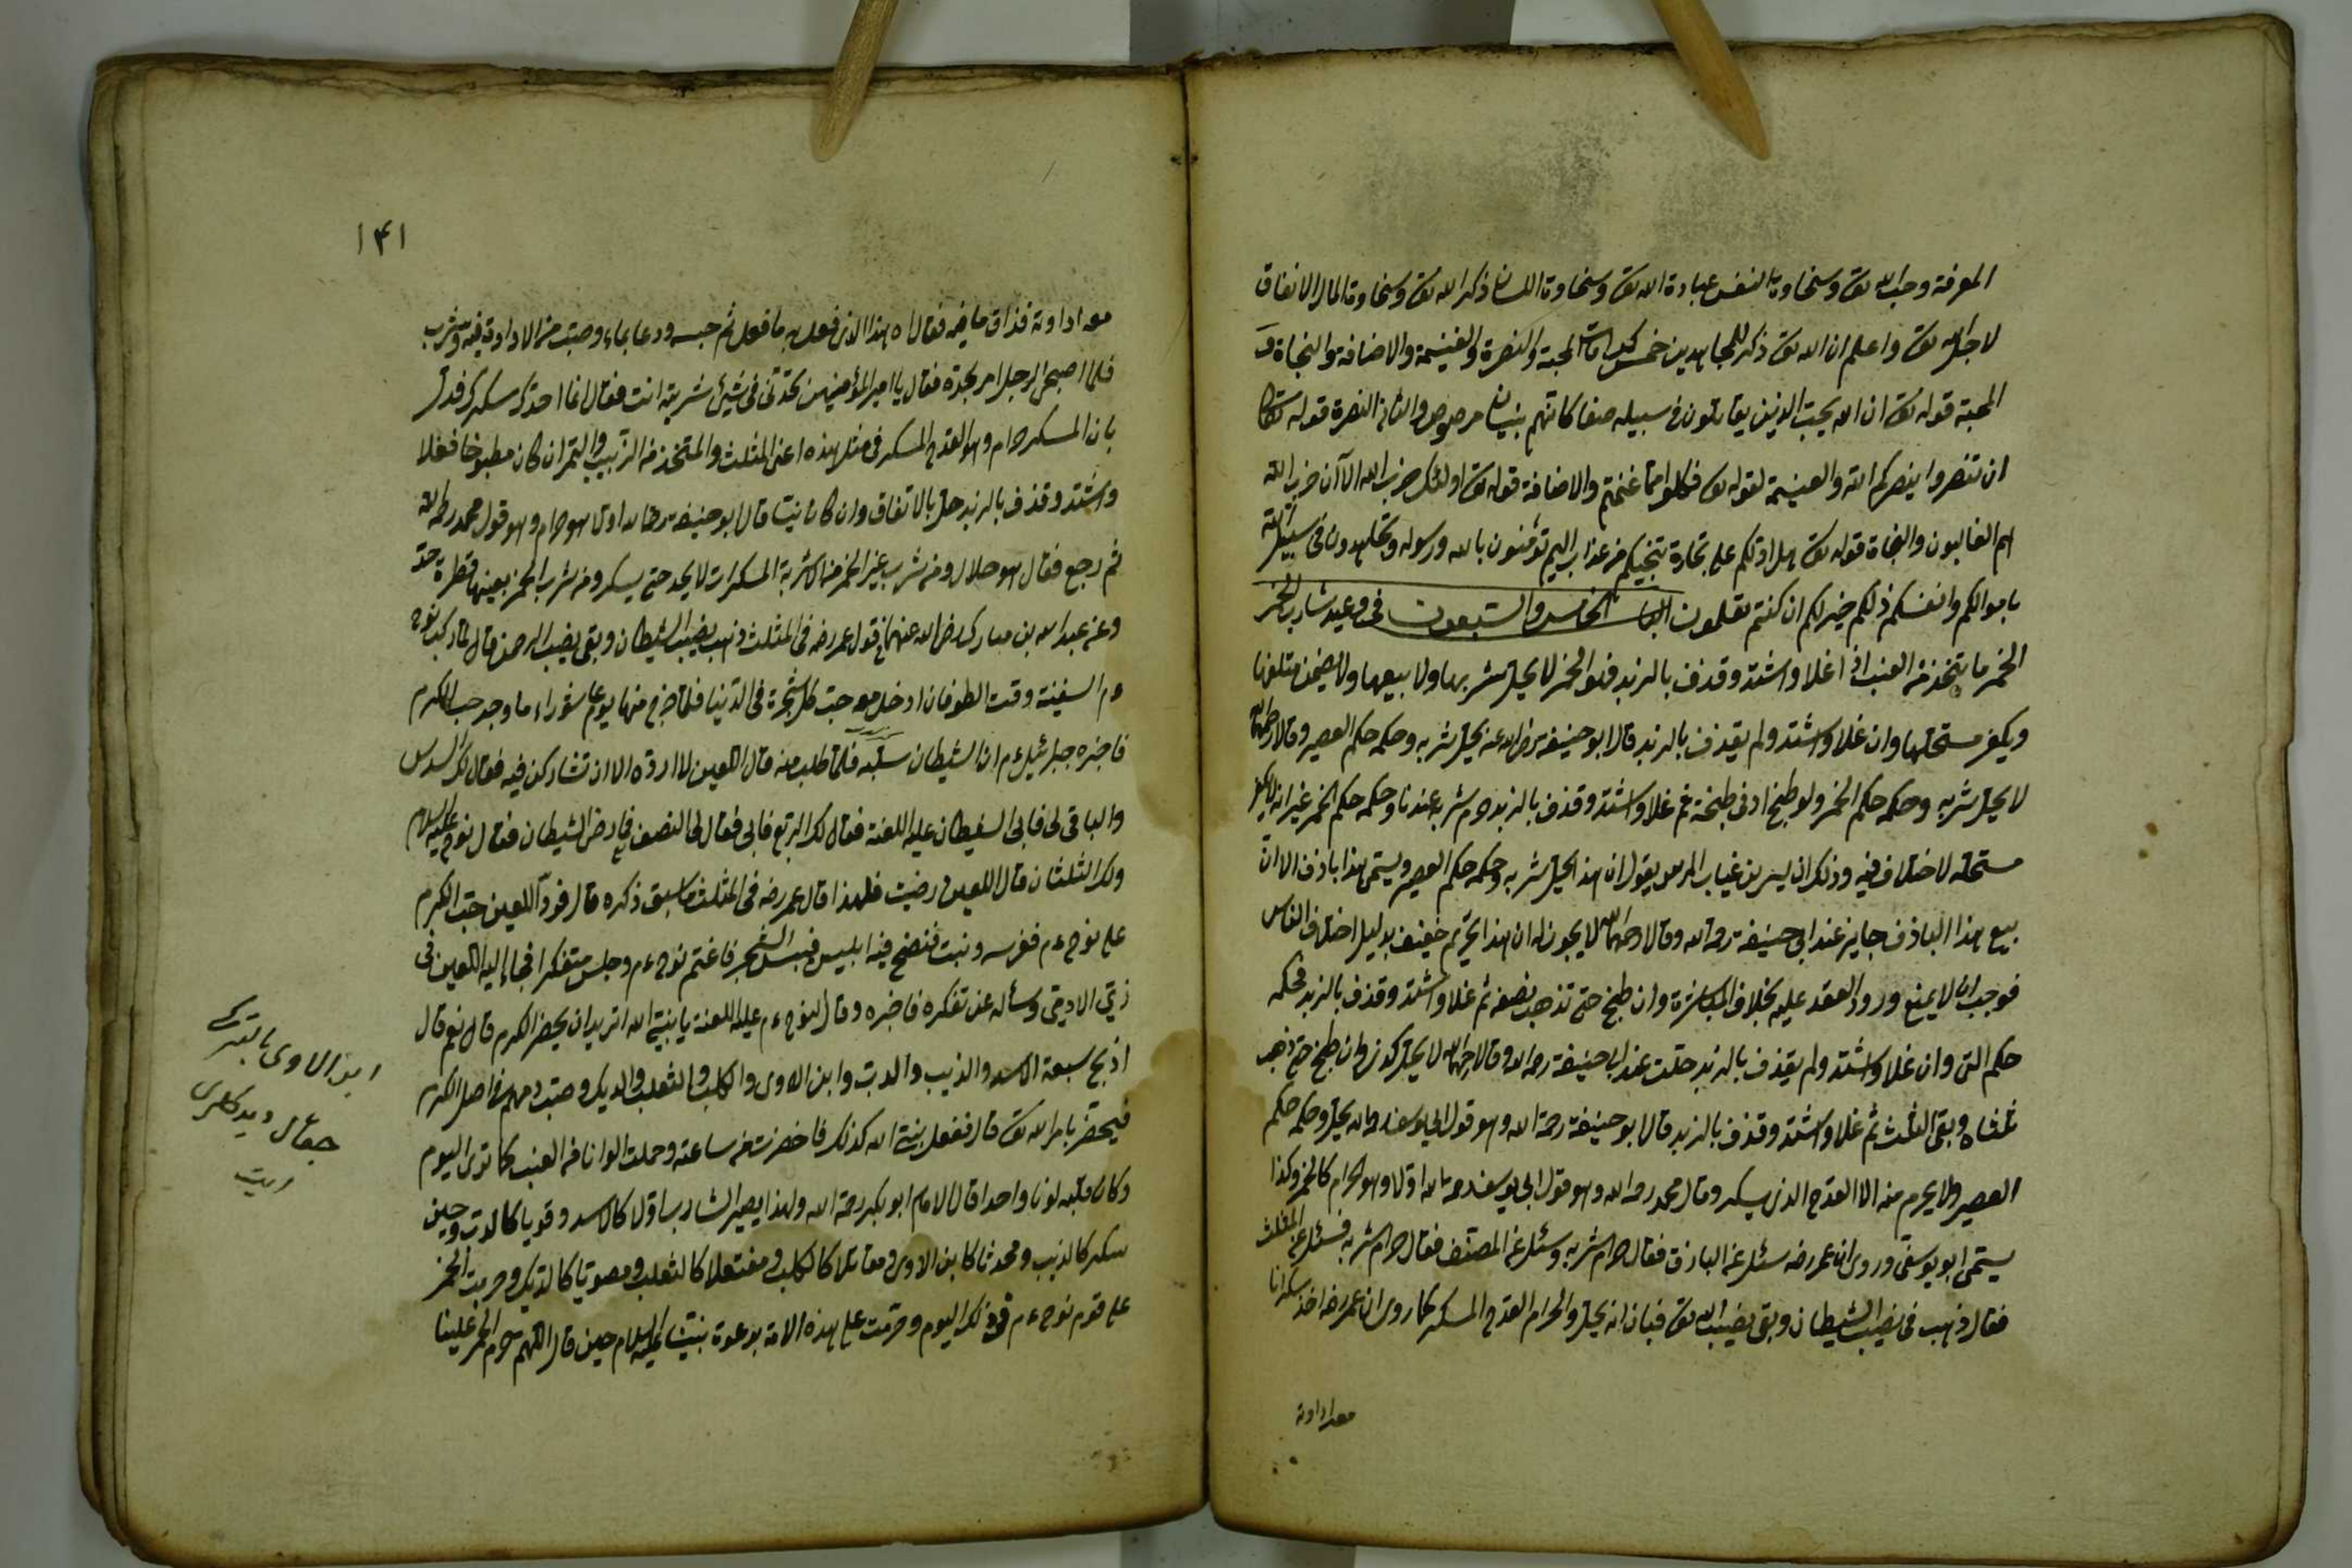 المعرفة وحب الله تعالى وسخاوة النفس عبادة الله تعالى وسخاوة اللسان ذكر الله تعالى وسخاوة المال الانفاق
لاجل الله تعالى واعلم ان الله تعالى ذكر للمجاهدين خمس كرامات المحبة والنصرة والغنيمة والاضافة والنجاة
المحبة قوله تعالى ان الله يحب الذين يقاتلون في سبيله صفا كانهم بنيان مرصوص والثاني النصرة قوله تعالى
ان تنصروا ينصركم الله والغنيمة لقوله تعالى فكلوا مما غنمتم والاضافة قوله تعالى اولئك حزب الله الا ان حزب الله
هم الغالبون والنجاة قوله تعالى هل ادلكم على تجارة تنجيكم من عذاب اليم تؤمنون بالله ورسوله وتجاهدون في سبيل الله
باموالكم وانفسكم ذلكم خير لكم ان كنتم تعلمون الباب الخامس والسبعون في وعيد شارب الخمر
الخمر ما يتخذ من العنب اذا غلا واشتد وقذف بالزبد فهو الخمر لا يحل شربها ولا بيعها ولا يضمن متلفها
ويكفر مستحلها وان غلا واشتد ولم يقذف بالزبد قال ابو حنيفة رضي الله عنه يحل شربه وحكمه حكم العصير وقالا رحمهما الله
لا يحل شربه وحكمه حكم الخمر ولو طبخ ادنى طبخة ثم غلا واشتد وقذف بالزبد حرم شربه عندنا وحكمه حكم الخمر غير انه لا يكفر
مستحله لاختلاف فيه وذلك ان بشر بن غياث المريس يقول ان هذا يحل شربه وحكمه حكم العصير ويسمى هذا باذق الا ان
بيع هذا الباذق جايز عند ابي حنيفة رحمه الله وقالا رحمهما الله لا يجوز له ان هذا تحريم خفيف بدليل اختلاف الناس
فوجب ان لا يمنع ورود العقد عليه بخلاف المباشرة وان طبخ حتى تذهب نصفه ثم غلا واشتد وقذف بالزبد فحكمه
حكم التي وان غلا واشتد ولم يقذف بالزبد حلت عند ابي حنيفة رحمه الله وقالا رحمهما الله لا يحل كذلك وان طبخ حتى ذهب
ثلثاه وبقي الثلث ثم غلا واشتد وقذف بالزبد قال ابو حنيفة رحمة الله وهو قول ابي يوسف رحمه الله يحل وحكمه حكم
العصير ولا يحرم منه الا القدح الذي يسكر وقال محمد رحمه الله وهو قول ابي يوسف رحمه الله اولا وهو حرام كالخمر وكذا
يسمى ابو يوسفي وروي ان عمر رضه سئل عن الباذق فقال حرام شربه وسئل عن المصنف فقال حرام شربه فسئل عن المثلث
فقال ذهب في نصيب الشيطان وبقي نصيب الله تعالى فبان انه يحل والحرام القدح المسكر كما روي ان عمر رضه اخذ سكرانا
معه اداوة
١٤١
معه اداوة فذاق ما فيه فقال اه هذا الذي فعل به ما فعل ثم حبسه ودعا بماء وصبت من الاداوة فيه وشرب
فلما اصبح الرجل امر بحده فقال يا امير المؤمنين تحدثني في شيئ شربته انت فقال انما احدك لسكرك فدل
بان المسكر حرام وهو القدح المسكر في مثل هذه اعني المثلث والمتخذ من الزبيب والتمر ان كان مطبوخا فغلا
واشتد وقذف بالزبد حل بالاتفاق وان كان نيئا قال ابو حنيفة رحمه الله اولا هو حرام وهو قول محمد رحمه الله
ثم رجع فقال هو حلال ومن شرب غير الخمر من اشربة المسكرات لا يحد حتى يسكر ومن شرب الخمر بعينها قطرة حد
وعن عبد الله بن مبارك رضي الله عنهما في قول عمر رضه في المثلث ذهب نصيب الشيطان وبقي نصيب الرحمن قال لما ركب نوح
ءم السفينة وقت الطوفان ادخل معه حبت كل شجرة في الدنيا فلما خرج منها يوم عاشوراء ما وجد حب الكرم
فاخبره جبرئيل ءم ان الشيطان سلبه فلما طلب منه قال اللعين لا ارده الا ان تشاركني فيه فقال لك السدس
والباقي لي فابى الشيطان عليه اللعنة فقال لك الربع فابى فقال لي النصف فلم يرض الشيطان فقال نوح عليه السلام
ولك الثلثان قال اللعين رضيت فلهذا قال عمر رضه في المثلث ما سبق ذكره قال فرد اللعين حب الكرم
على نوح ءم فغرسه ونبت فنضح فيه ابليس فيبس الشجر فاغتم نوح ءم وجلس متفكرا فجاء اليه اللعين في
زي الادمي وسأله عن تفكره فاخبره وقال لنوح ءم عليه اللعنة يا نبي الله اتريد ان يحضر الكرم قال نعم قال
اذبح سبعة الاسد والذيب والدب وابن الاوى والكلب والثعلب والديك وصب دمهم في اصل الكرم
فيحضر بامر الله تعالى قال ففعل نبي الله كذلك فاخضرت من ساعته وحملت الوانا من العنب كما ترى اليوم
وكان قبله لونا واحدا قال الامام ابو بكر رحمة الله ولهذا يصير الشارب اولا كالاسد وقويا كالدب وحين
سكر كالذيب ومحدثا كابن الاوى ومقاتلا كالكلب ومفتعلا كالثعلب ومصوتا كالديك وحرمت الخمر
على قوم نوح ءم في ذلك اليوم وحرمت على هذه الامة بدعوة نبينا عليه السلام حين قال اللهم حرم الخمر علينا
ابن الاوى بالتركي
جقال ديدكلري
ايت